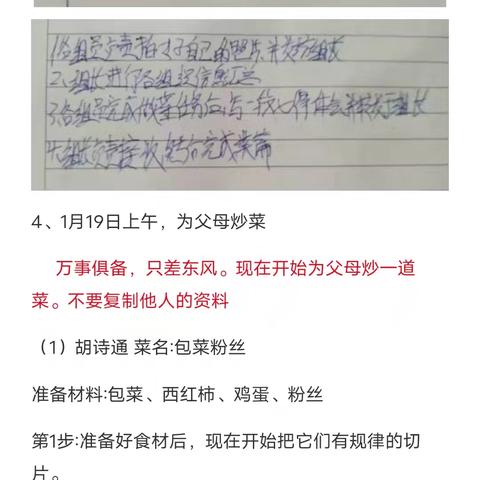 1.各组员负责拍好自己的照片并发给组长
2.组长进行各组员信息汇总
3.各组员完成做菜任务后,写一段心得体会并发给组长
4.组长负责接收 完成美篇
4、1月19日上午，为父母炒菜
万事俱备，只差东风。现在开始为父母炒一道
菜。不要复制他人的资料
（1）胡诗通 菜名:包菜粉丝
准备材料:包菜、西红柿、鸡蛋、粉丝
第1步:准备好食材后，现在开始把它们有规律的切
片。